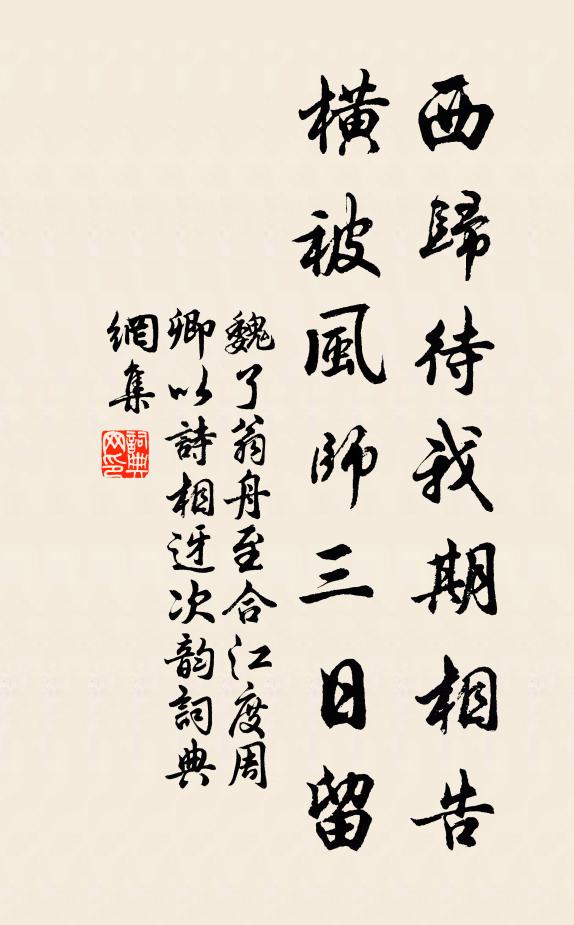 西歸待我期相告
橫被風師三日留
魏了翁舟至合江度周
卿以詩相迓次韵詞典
網集
詞典網印